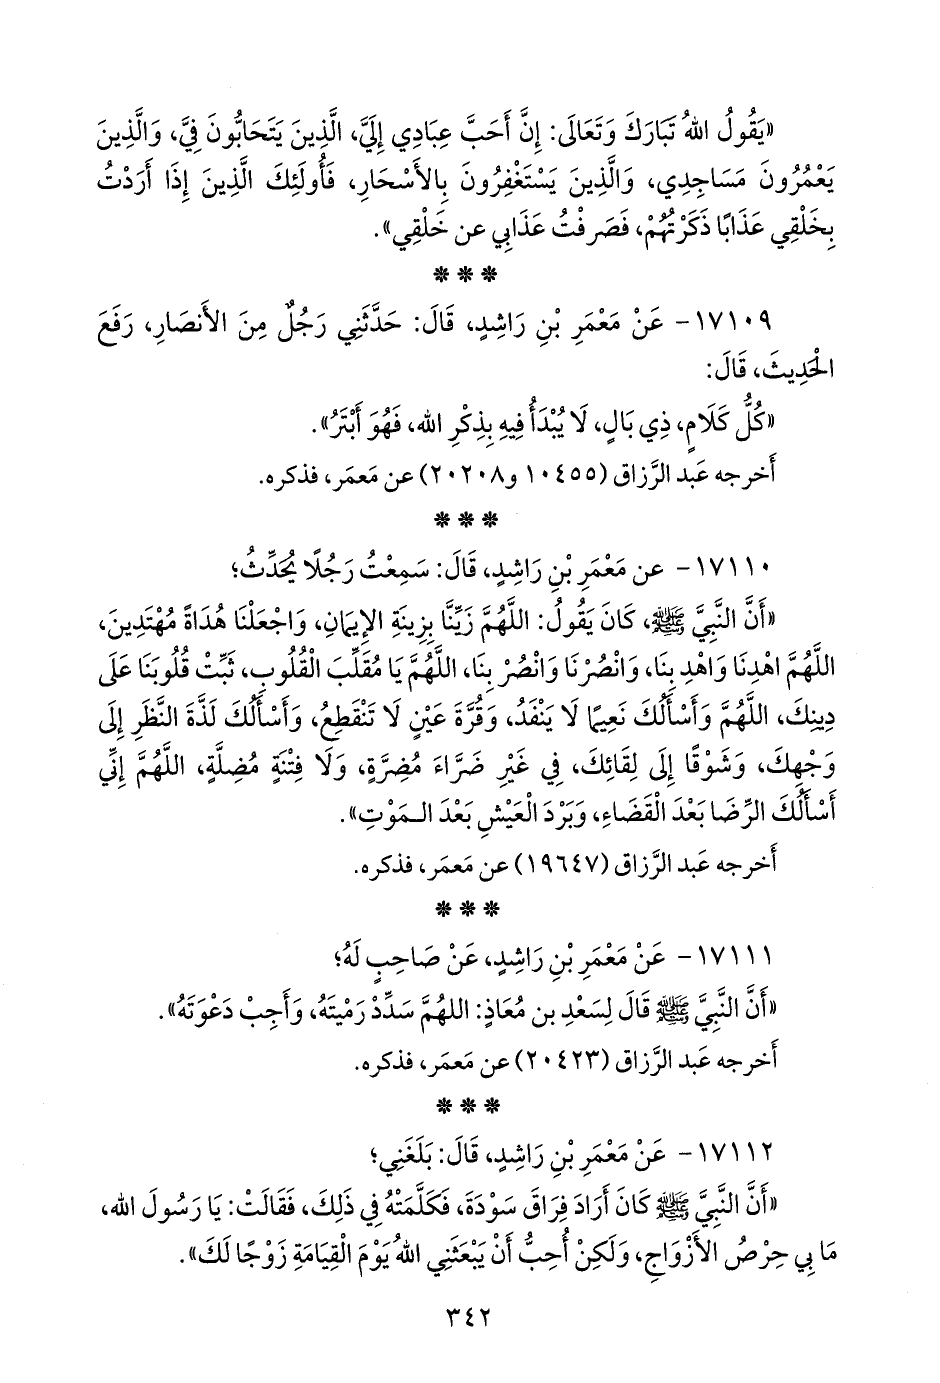 «يَقُولُ اللهُ تَبَارَكَ وَتَعَالَى: إِنَّ أَحَبَّ عِبَادِي إِلَيَّ، الَّذِينَ يَتَحَابُّونَ فِيَّ، وَالَّذِينَ
يَعْمُرُونَ مَسَاجِدِي، وَالَّذِينَ يَسْتَغْفِرُونَ بِالأَسْحَارِ، فَأُولَئِكَ الَّذِينَ إِذَا أَرَدْتُ
بِخَلْقِي عَذَابًا ذَكَرْتُهُمْ، فَصَرفْتُ عَذَابِي عن خَلْقِي».
***
١٧١٠٩- عَنْ مَعْمَرِ بْنِ رَاشِدٍ، قَالَ: حَدَّثَنِي رَجُلٌ مِنَ الأَنصَارِ، رَفَعَ
الْحَدِيثَ، قَالَ:
«كُلُّ كَلَامٍ، ذِي بَالٍ، لَا يُبْدَأُ فِيهِ بِذِكْرِ الله، فَهُوَ أَبْتَرُ».
أَخرجه عَبد الرَّزاق (١٠٤٥٥ و٢٠٢٠٨) عن مَعمَر، فذكره.
***
١٧١١٠- عن مَعْمَرِ بْنِ رَاشِدٍ، قَالَ: سَمِعْتُ رَجُلًا يُحَدِّثُ؛
«أَنَّ النَّبِيَّ ﷺ، كَانَ يَقُولُ: اللَّهُمَّ زَيِّنَّا بِزِينَةِ الإِيمَانِ، وَاجْعَلْنَا هُدَاةً مُهْتَدِينَ،
اللَّهُمَّ اهْدِنَا وَاهْدِ بِنَا، وَانْصُرْنَا وَانْصُرْ بِنَا، اللَّهُمَّ يَا مُقَلِّبَ الْقُلُوبِ، ثَبِّتْ قُلُوبَنَا عَلَى
دِينِكَ، اللَّهُمَّ وَأَسْأَلُكَ نَعِيمًا لَا يَنْفَدُ، وَقُرَّةَ عَيْنٍ لَا تَنْقَطِعُ، وَأَسْأَلُكَ لَذَّةَ النَّظَرِ إِلَى
وَجْهِكَ، وَشَوْقًا إِلَى لِقَائِكَ، فِي غَيْرِ ضَرَّاءَ مُضِرَّةٍ، وَلَا فِتْنَةٍ مُضِلَّةٍ، اللَّهُمَّ إِنِّي
أَسْأَلُكَ الرِّضَا بَعْدَ الْقَضَاءِ، وَبَرْدَ الْعَيْشِ بَعْدَ الـمَوْتِ».
أَخرجه عَبد الرَّزاق (١٩٦٤٧) عن مَعمَر، فذكره.
***
١٧١١١- عَنْ مَعْمَرِ بْنِ رَاشِدٍ، عَنْ صَاحِبٍ لَهُ؛
«أَنَّ النَّبِيَّ ﷺ قَالَ لِسَعْدِ بن مُعَاذٍ: اللهُمَّ سَدِّدْ رَمْيَتَهُ، وَأَجِبْ دَعْوَتَهُ».
أَخرجه عَبد الرَّزاق (٢٠٤٢٣) عن مَعمَر، فذكره.
***
١٧١١٢- عَنْ مَعْمَرِ بْنِ رَاشِدٍ، قَالَ: بَلَغَنِي؛
«أَنَّ النَّبِيَّ ﷺ كَانَ أَرَادَ فِرَاقَ سَوْدَةَ، فَكَلَّمَتْهُ فِي ذَلِكَ، فَقَالَتْ: يَا رَسُولَ الله،
مَا بِي حِرْصُ الأَزْوَاجِ، وَلَكِنْ أُحِبُّ أَنْ يَبْعَثَنِي اللهُ يَوْمَ الْقِيَامَةِ زَوْجًا لَكَ».
٣٤٢